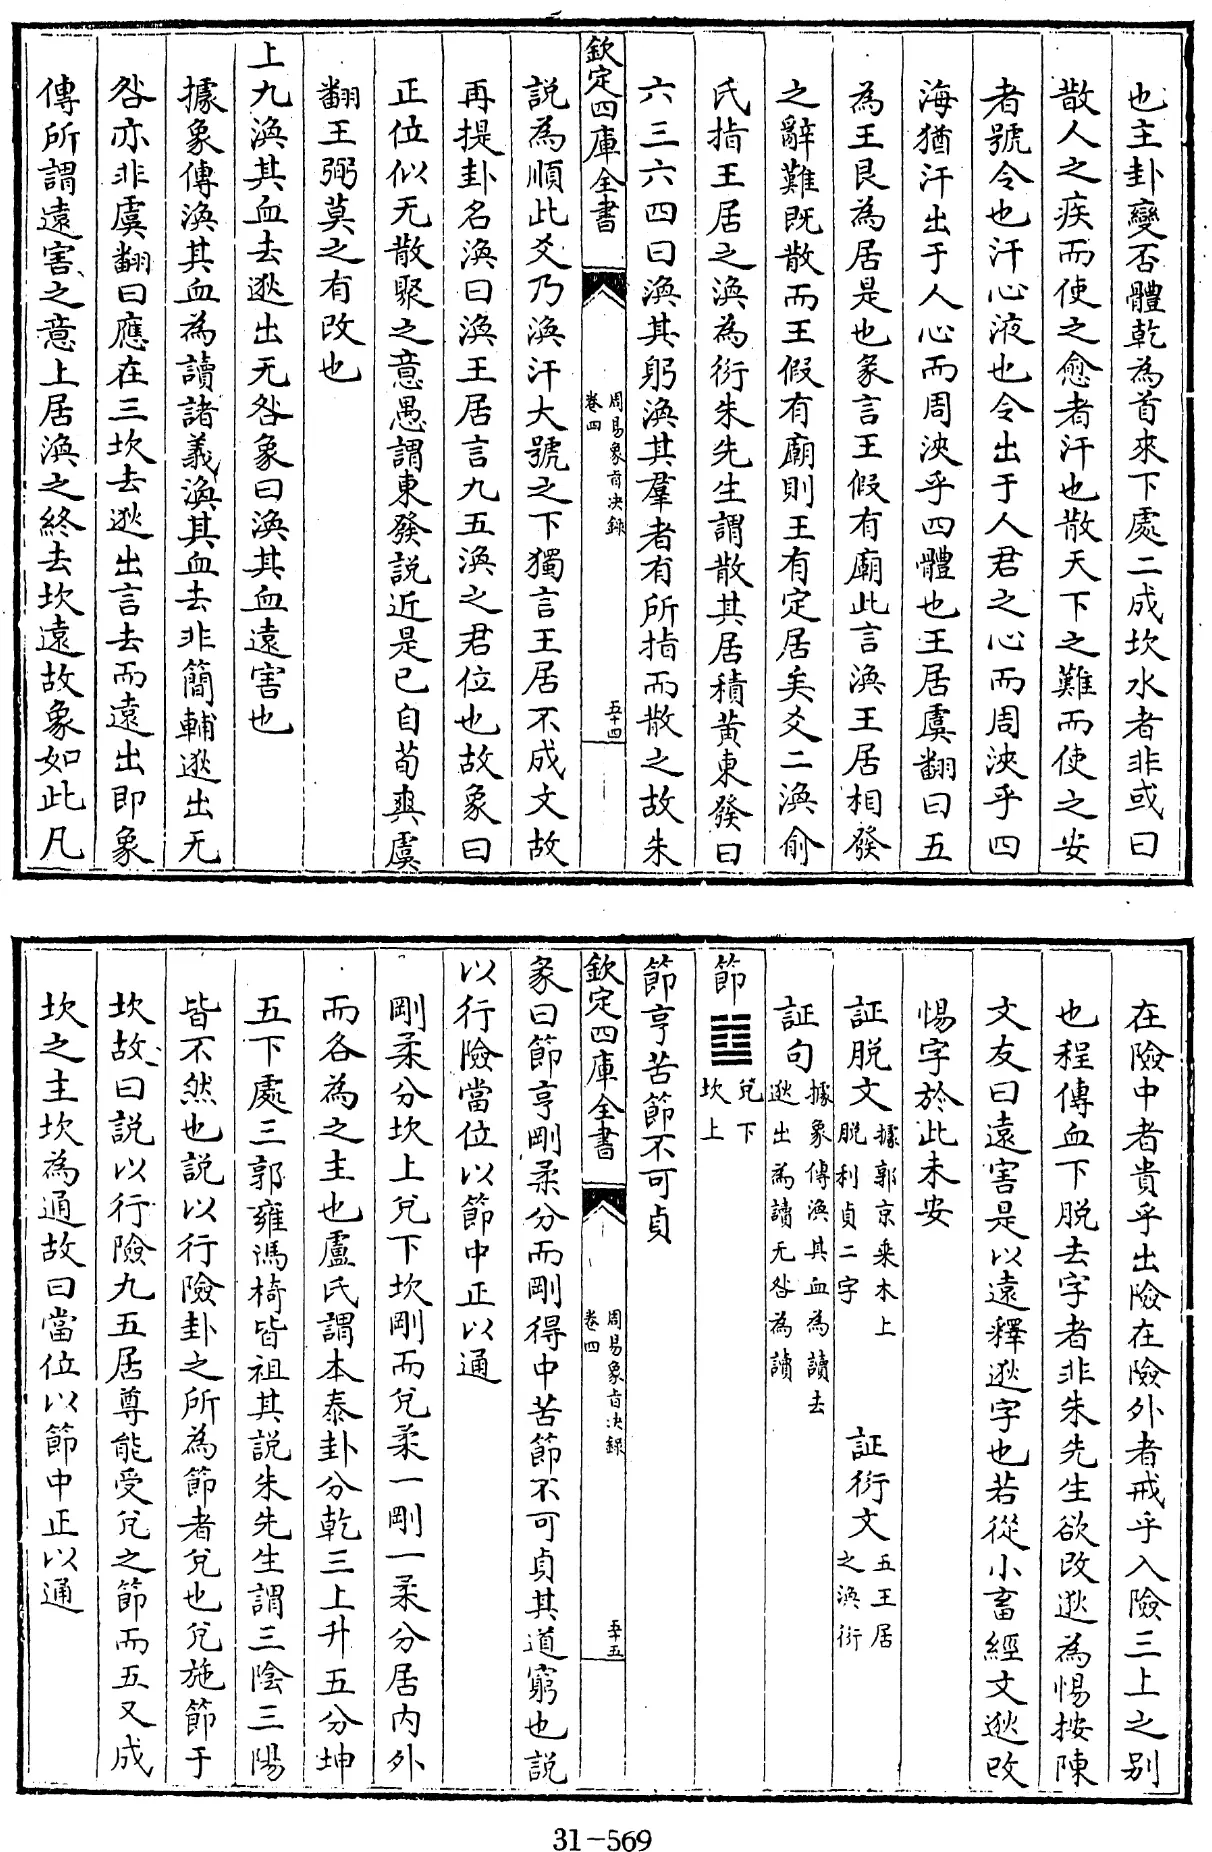 也主卦變否體乾為首來下處二成坎水者非或曰
散人之疾而使之愈者汗也散天下之難而使之安
者號令也汗心液也令出于人君之心而周浹乎四
海猶汗出于人心而周浹乎四體也王居虞翻曰五
為王艮為居是也彖言王假有廟此言渙王居相發
之辭難既散而王假有廟則王有定居矣爻二渙俞
氏指王居之渙為衍朱先生謂散其居積黃東發曰
六三六四曰渙其躬渙其羣者有所指而散之故朱
欽定四庫全書
周易象旨決錄
卷四
五十四
説為順此爻乃渙汗大號之下獨言王居不成文故
再提卦名渙曰渙王居言九五渙之君位也故象曰
正位似无散聚之意愚謂東發説近是已自荀爽虞
翻王弼莫之有改也
上九渙其血去逖出无咎象曰渙其血遠害也
據象傳渙其血為讀諸義渙其血去非簡輔逖出无
咎亦非虞翻曰應在三坎去逖出言去而遠出即象
傳所謂遠害之意上居渙之終去坎遠故象如此凡
在險中者貴乎出險在險外者戒乎入險三上之别
也程傳血下脱去字者非朱先生欲改逖為惕按陳
文友曰遠害是以遠釋逖字也若從小畜經文逖改
惕字於此未安
証脱文據郭京乘木上脱利貞二字 証衍文五王居之渙衍
証句據象傳渙其血為讀去逖出為讀无咎為讀
節䷻兌下坎上
節亨苦節不可貞
欽定四庫全書
周易象旨決錄
卷四
五十五
彖曰節亨剛柔分而剛得中苦節不可貞其道窮也説
以行險當位以節中正以通
剛柔分坎上兌下坎剛而兌柔一剛一柔分居内外
而各為之主也盧氏謂本泰卦分乾三上升五分坤
五下處三郭雍馮椅皆祖其説朱先生謂三陰三陽
皆不然也説以行險卦之所為節者兌也兌施節于
坎故曰説以行險九五居尊能受兌之節而五又成
坎之主坎為通故曰當位以節中正以通
31-569